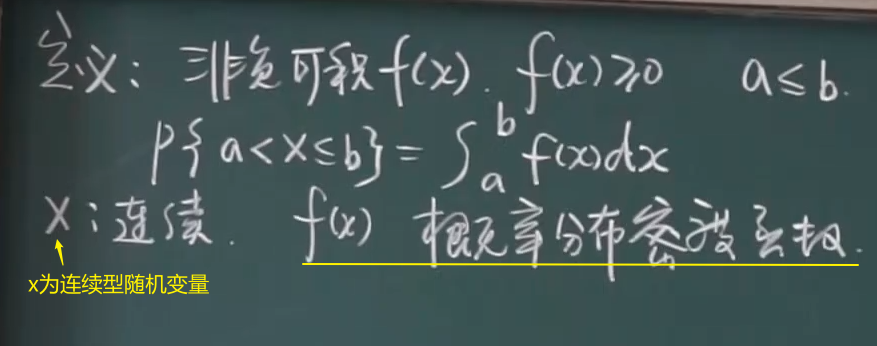 定义: 非负可积f(x). f(x)≥0 a≤b.
P{a<X≤b}=∫_a^b f(x)dx
X:连续. f(x) 概率分布密度函数.
x为连续型随机变量